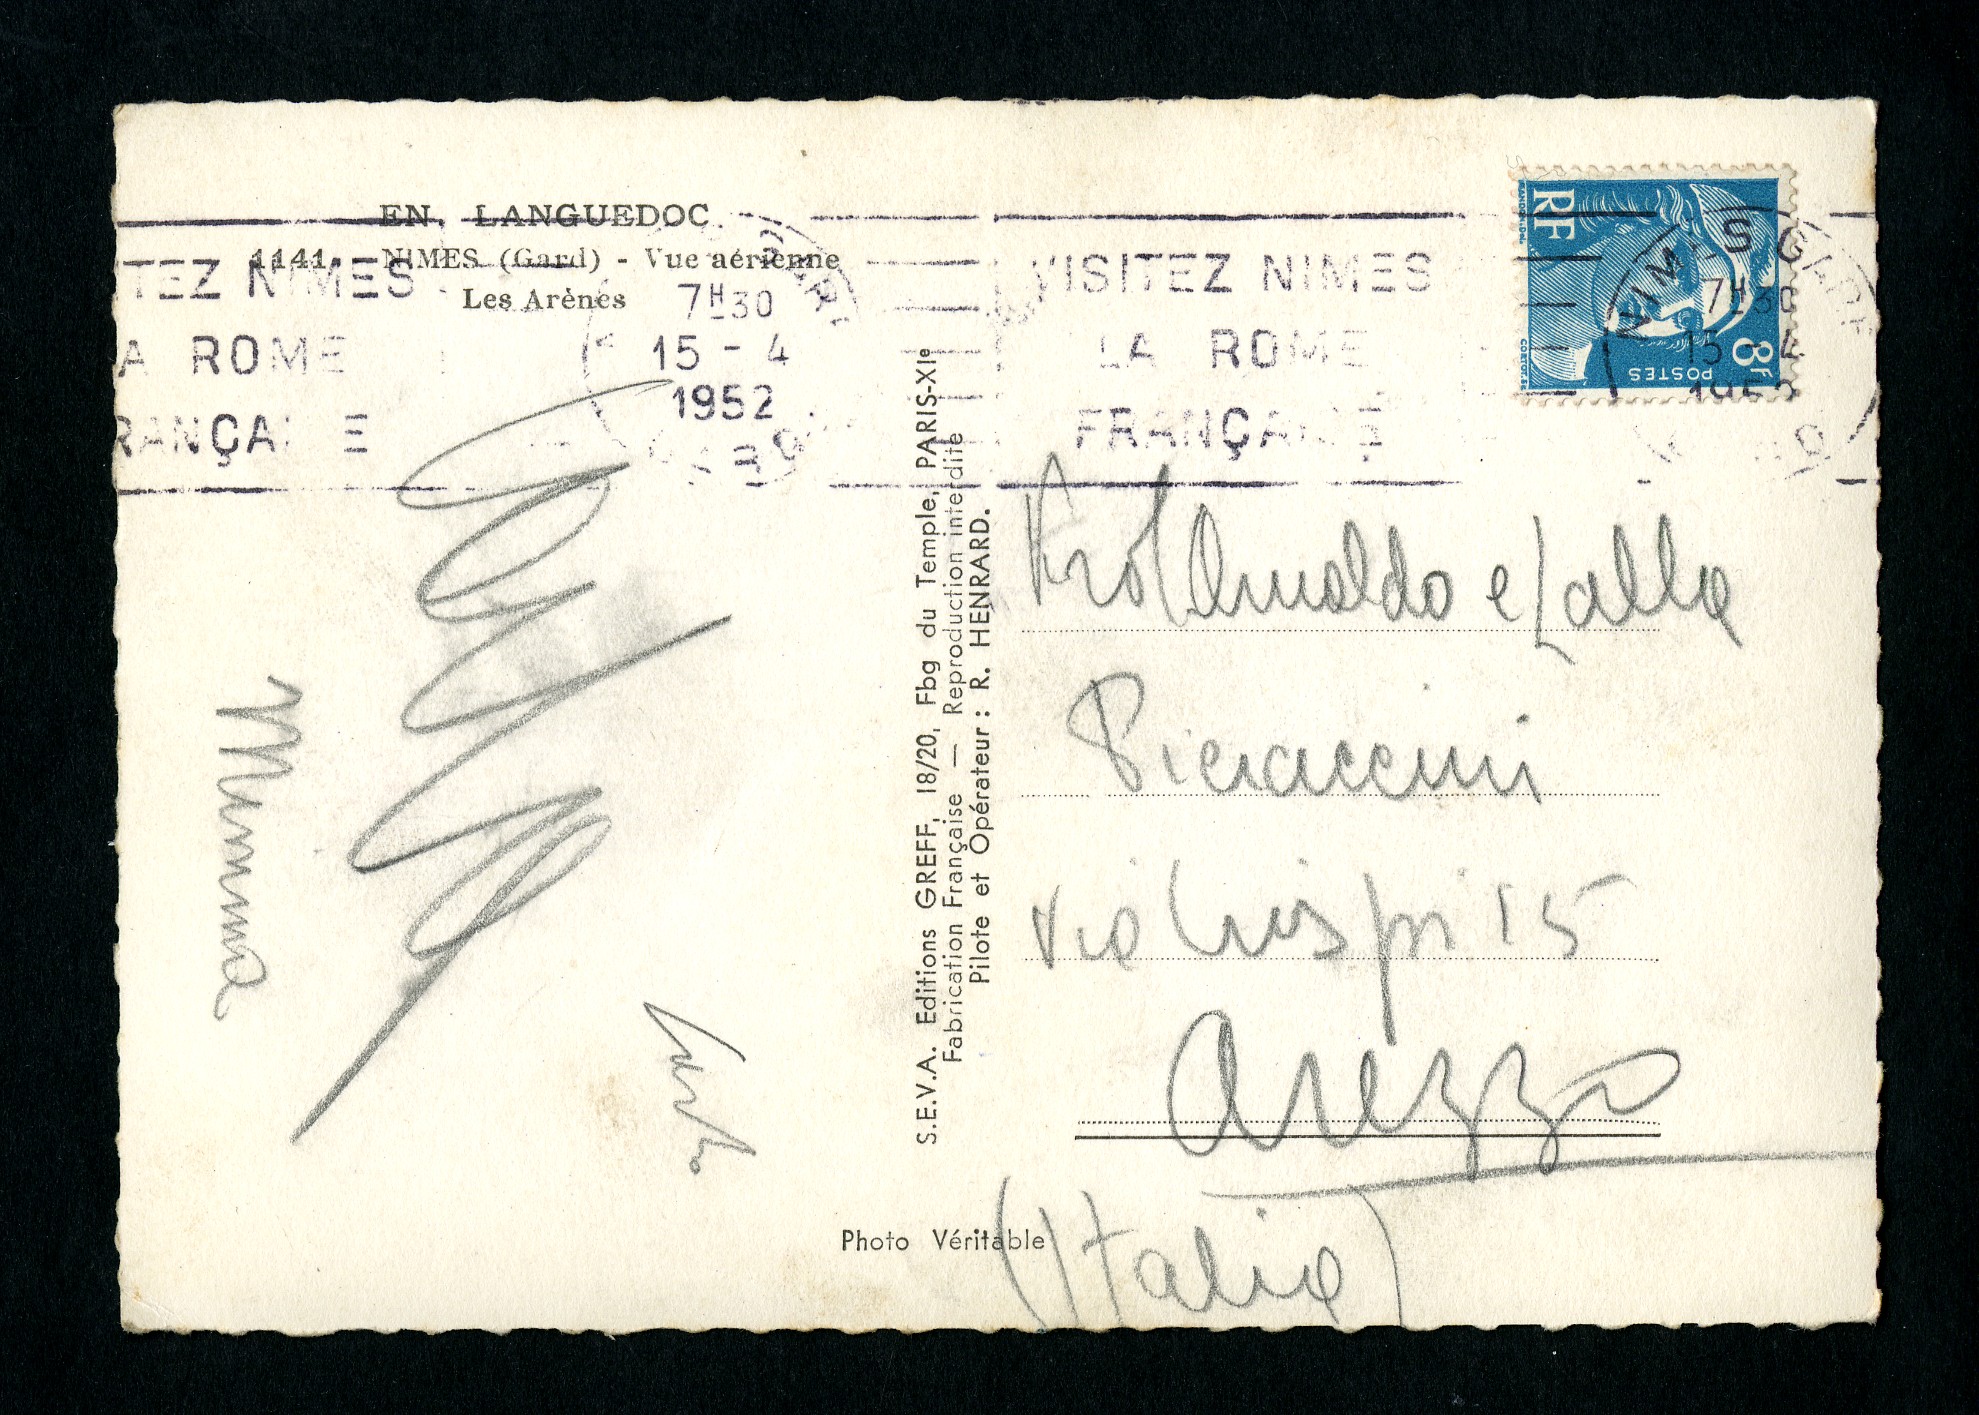 EN LANGUEDOC
1141. - NIMES (Gard) - Vue aérienne
Les Arènes
TEZ NIMES
A ROME
RANÇAI E
7H30
15 - 4
1952
VISITEZ NIMES
LA ROME
FRANÇAISE
NIMES GARE
7H30
15 - 4
1952
RF
POSTES
8f
S.E.V.A. Editions GREFF, 18/20, Fbg du Temple, PARIS-XIe
Fabrication Française — Reproduction interdite
Pilote et Opérateur : R. HENRARD.
Photo Véritable
Prof Arnaldo e Lalla
Pieraccini
Via Crispi 15
Arezzo
(Italia)